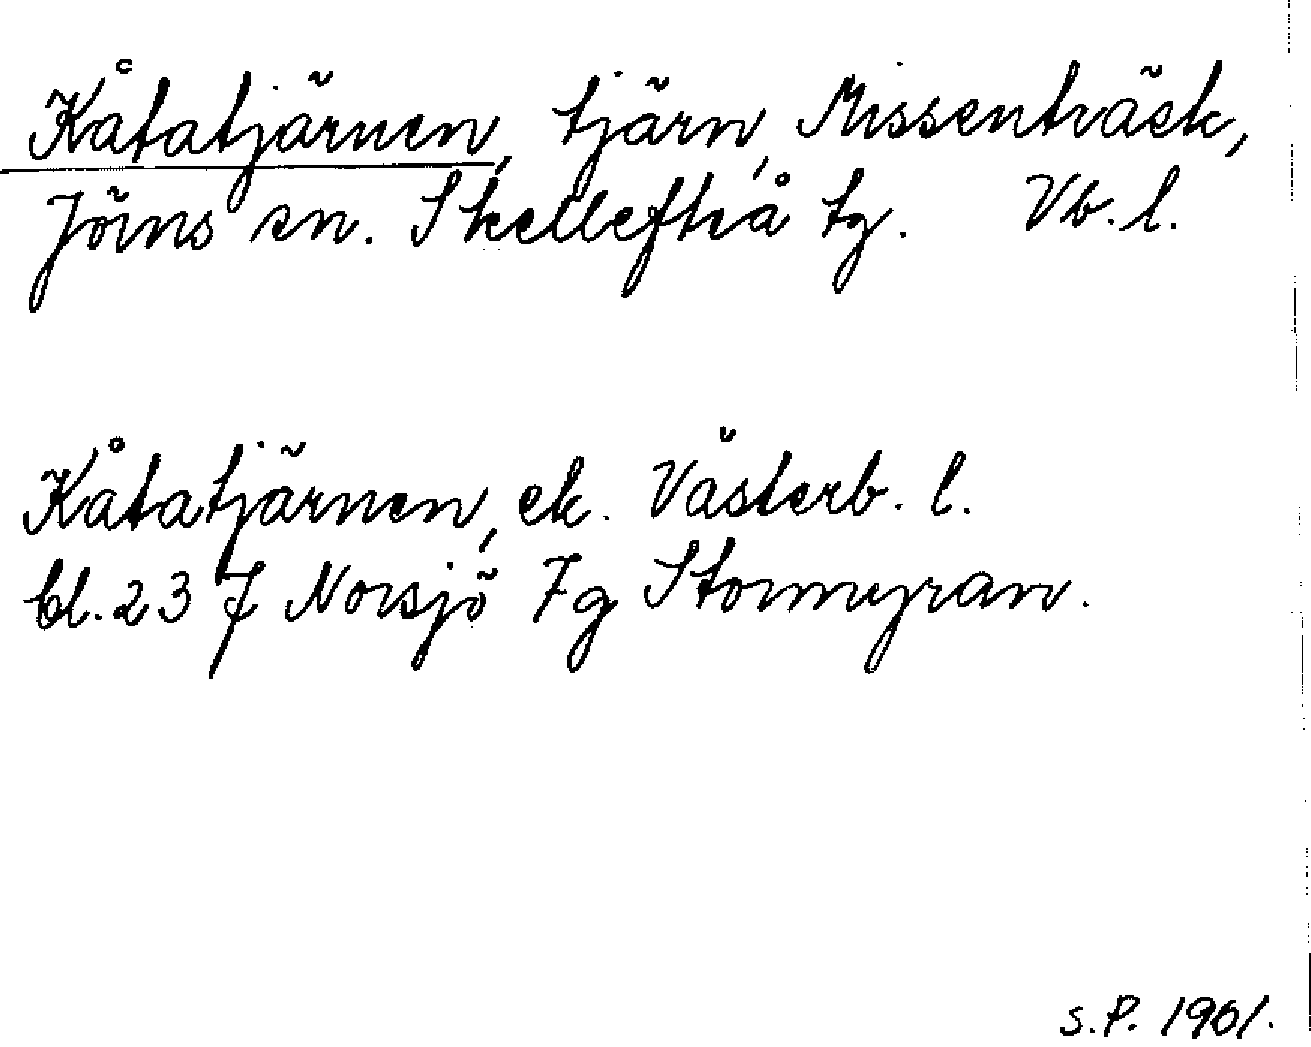 Kåtatjärnen, tjärn, Missenträsk,
Jörns sn. Skellefteå tg. Vb. l.
Kåtatjärnen, ek. Västerb. l.
bl. 23 J Norsjö 7g Stormyran.
S.P. 1961.